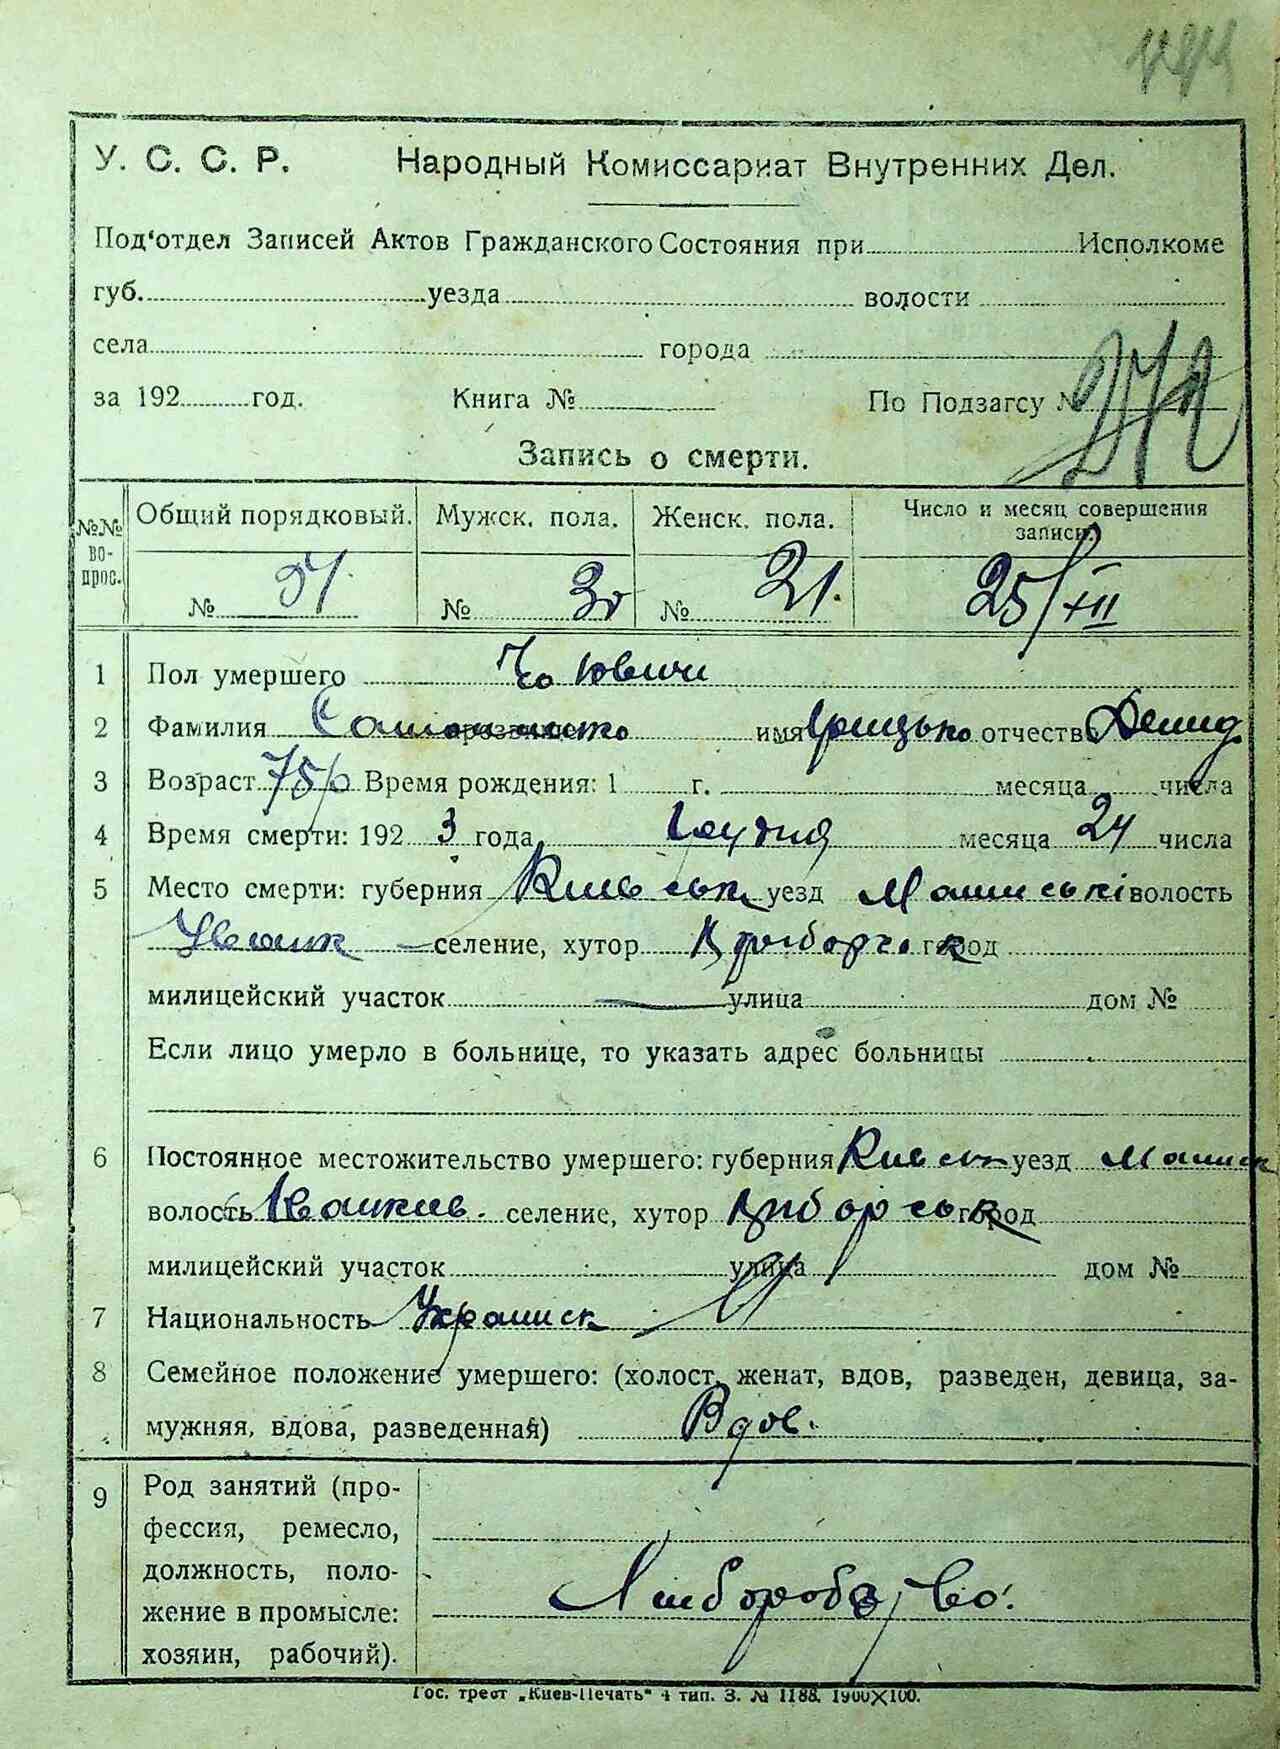 У. С. С. Р. Народный Комиссариат Внутренних Дел.
Под'отдел Записей Актов Гражданского Состояния при Исполкоме
губ. уезда волости
села города
за 192 год. Книга № По Подзагсу № 272
Запись о смерти.
№№ вопрос. Общий порядковый. Мужск. пола. Женск. пола. Число и месяц совершения записи.
№ № № 21. 25/XII
1 Пол умершего Чоловичи
2 Фамилия прозвание имя Грицько отчество Демид
3 Возраст 75 р Время рождения: 1 г. месяца числа
4 Время смерти: 192 3 года Грудня месяца 24 числа
5 Место смерти: губерния Київськ уезд волость
селение, хутор город
милицейский участок — улица дом №
Если лицо умерло в больнице, то указать адрес больницы
6 Постоянное местожительство умершего: губерния Київськ уезд
волость селение, хутор город
милицейский участок улица дом №
7 Национальность Украинск
8 Семейное положение умершего: (холост, женат, вдов, разведен, девица, за-
мужняя, вдова, разведенная) Вдов.
9 Род занятий (про-
фессия, ремесло,
должность, поло-
жение в промысле:
хозяин, рабочий).
Хлиборобство.
Гос. трест „Киев-Печать" 4 тип. З. № 1188. 1900×100.